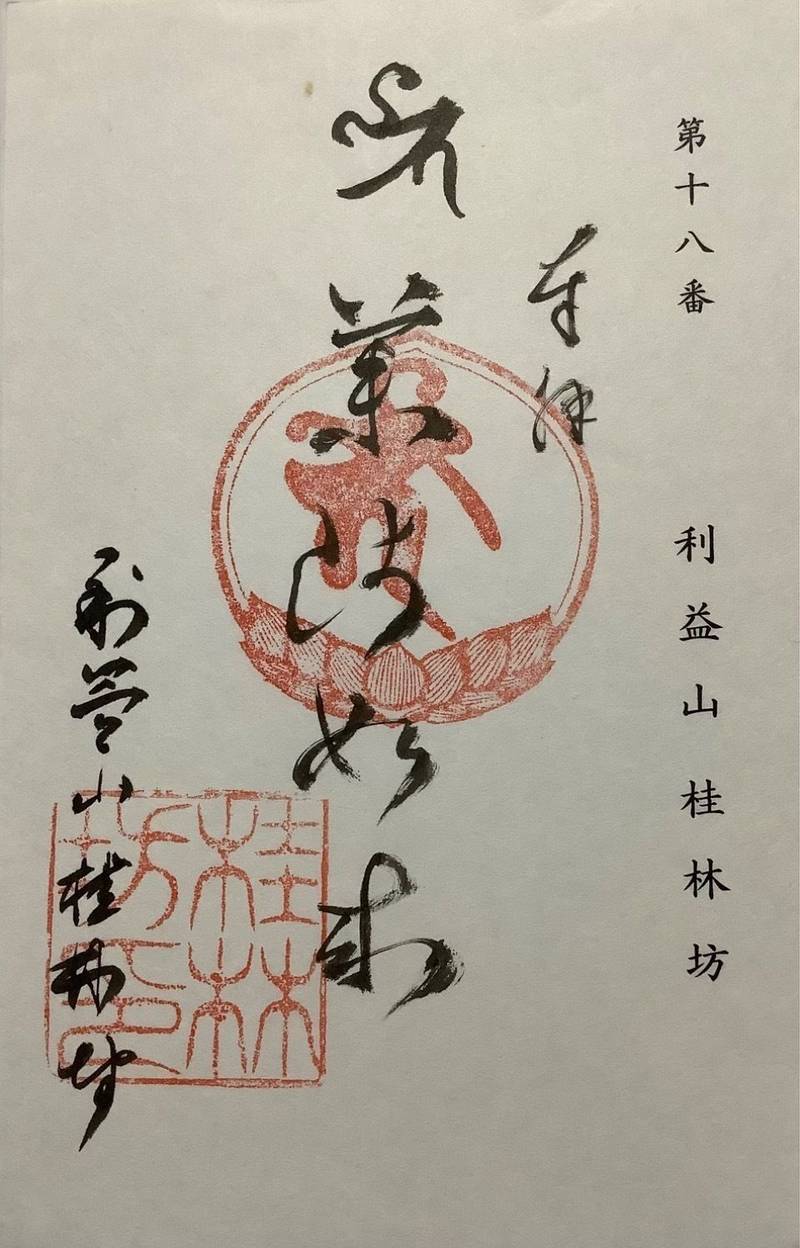 第十八番 利益山桂林坊
奉拝
薬師如来
利益山桂林坊
桂林坊印